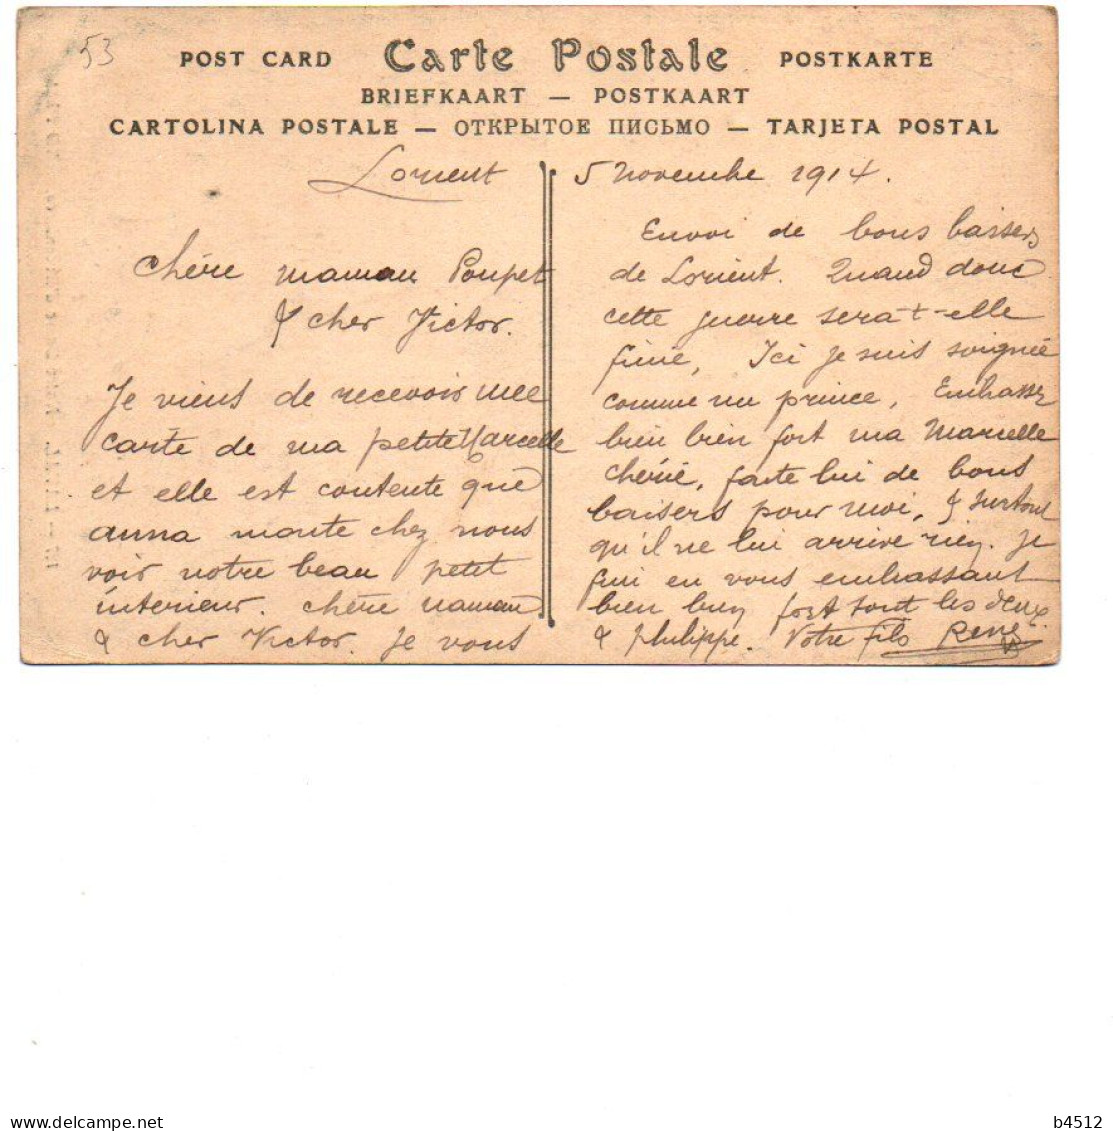 53
POST CARD Carte Postale POSTKARTE
BRIEFKAART — POSTKAART
CARTOLINA POSTALE — ОТКРЫТОЕ ПИСЬМО — TARJETA POSTAL
Lorient
chère maman Poupet
& cher Victor.
Je viens de recevoir une
carte de ma petite Marcelle
et elle est contente que
anna monte chez nous
voir notre beau petit
interieur. chère maman
& cher Victor. Je vous
5 Novembre 1914.
Envoi de bons baisers
de Lorient. Quand donc
cette guerre sera-t-elle
finie, Ici je suis soignée
comme un prince, Embasse
bien bien fort ma Marcelle
chérie, faite lui de bons
baisers pour moi, & surtout
qu'il ne lui arrive rien. Je
fini en vous embassant
bien bien fort tout les deux.
& Philippe. Votre fils René
delcampe.net
b4512